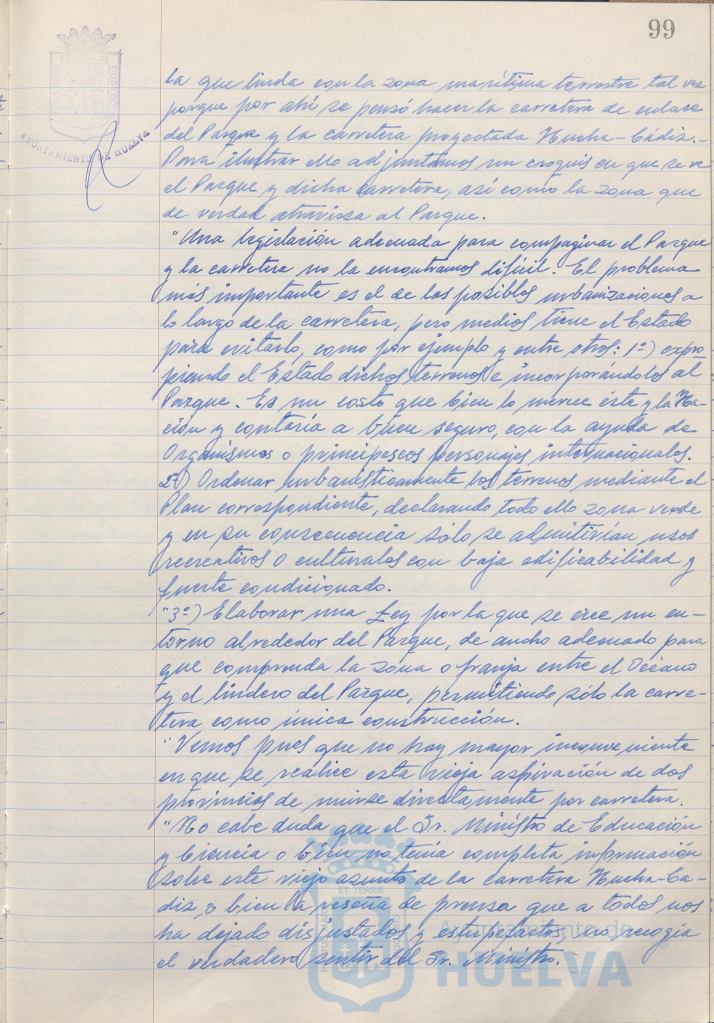 99
AYUNTAMIENTO DE HUELVA
la que linda con la zona marítima terrestre tal vez
porque por ahí se pensó hacer la carretera de enlace
del Parque y la carretera proyectada Huelva-Cádiz.-
Para ilustrar ello adjuntamos un croquis en que se ve
el Parque y dicha carretera, así como la zona que
de verdad atraviesa al Parque.
"Una legislación adecuada para compaginar el Parque
y la carretera no la encontramos difícil. El problema
más importante es el de las posibles urbanizaciones a
lo largo de la carretera, pero medios tiene el Estado
para evitarlo, como por ejemplo y entre otros: 1º) expro
piando el Estado dichos terrenos e incorporándolos al
Parque. Es un costo que bien lo merece éste y la Na-
ción y contaría a buen seguro, con la ayuda de
Organismos o principescos personajes internacionales.
2º) Ordenar urbanísticamente los terrenos mediante el
Plan correspondiente, declarando todo ello zona verde
y en su consecuencia sólo se admitirían usos
recreativos o culturales con baja edificabilidad y
fuerte condicionado.
"3º) Elaborar una Ley por la que se cree un en-
torno alrededor del Parque, de ancho adecuado para
que comprenda la zona o franja entre el Océano
y el lindero del Parque, permitiendo sólo la carre-
tera como única construcción.
"Vemos pues que no hay mayor inconveniente
en que se realice esta vieja aspiración de dos
provincias de unirse directamente por carretera.
"No cabe duda que el Sr. Ministro de Educación
y Ciencia o bien no tenía completa información
sobre este viejo asunto de la carretera Huelva-Cá-
diz, o bien la reseña de prensa que a todos nos
ha dejado disgustados y estupefactos, no recogía
el verdadero sentir del Sr. Ministro.
Ayuntamiento de
HUELVA